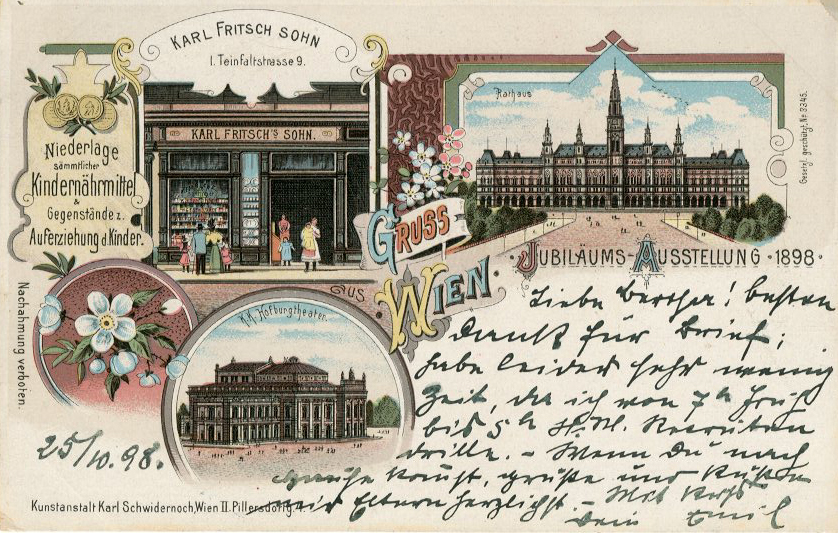 KARL FRITSCH SOHN
I. Teinfaltstrasse 9.
KARL FRITSCH'S SOHN.
Niederlage
sämmtlicher
Kindernährmittel
&
Gegenstände z.
Auferziehung d. Kinder.
Rathaus
Gesetzl. geschützt. Nr 3345.
GRUSS
AUS
WIEN.
JUBILÄUMS-AUSSTELLUNG 1898
K.K. Hofburgtheater.
Nachahmung verboten.
Liebe Bertha! besten
Dank für Brief;
habe leider sehr wenig
Zeit, da ich von 7h Früh
bis 5h Rekruten
drille. – Wenn Du nach
Hause kommst, grüße und küsse
mir Eltern herzlichst. – Mit
Dein Emil
25/10.98.
Kunstanstalt Karl Schwidernoch, Wien II. Pillersdorfg. 4.